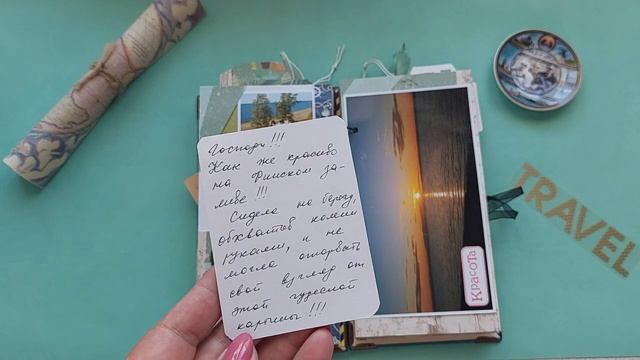 Господи!!!
Как же красиво
на Финском за-
ливе!!!
Сидела на берегу,
обхватив колени
руками, и не
могла оторвать
свой взгляд от
этой чудесной
картины!!!
Красота
TRAVEL